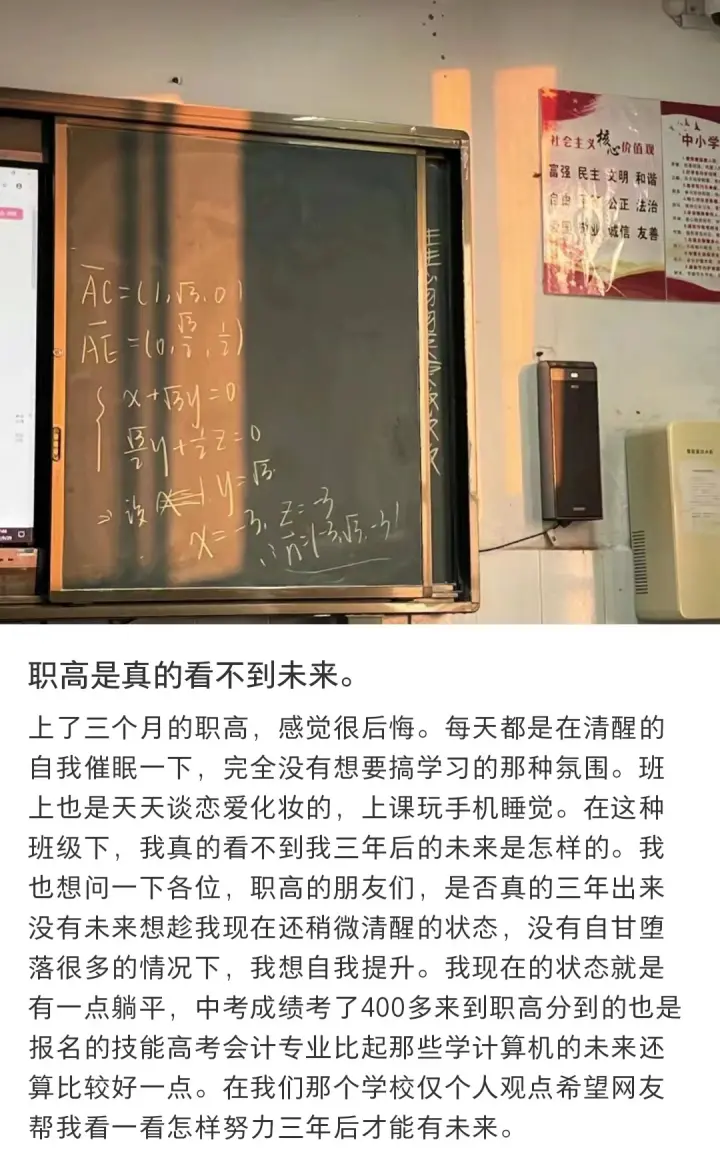 社会主义核心价值观
富强 民主 文明 和谐
自由 平等 公正 法治
爱国 敬业 诚信 友善
中小学
AC=(1,√3,0)
AE=(0,√3/2,1/2)
x+√3y=0
√3/2y+1/2z=0
⇒设 y=√3
x=-3, z=-3
∴n=(-3,√3,-3)
职高是真的看不到未来。
上了三个月的职高，感觉很后悔。每天都是在清醒的
自我催眠一下，完全没有想要搞学习的那种氛围。班
上也是天天谈恋爱化妆的，上课玩手机睡觉。在这种
班级下，我真的看不到我三年后的未来是怎样的。我
也想问一下各位，职高的朋友们，是否真的三年出来
没有未来想趁我现在还稍微清醒的状态，没有自甘堕
落很多的情况下，我想自我提升。我现在的状态就是
有一点躺平，中考成绩考了400多来到职高分到的也是
报名的技能高考会计专业比起那些学计算机的未来还
算比较好一点。在我们那个学校仅个人观点希望网友
帮我看一看怎样努力三年后才能有未来。